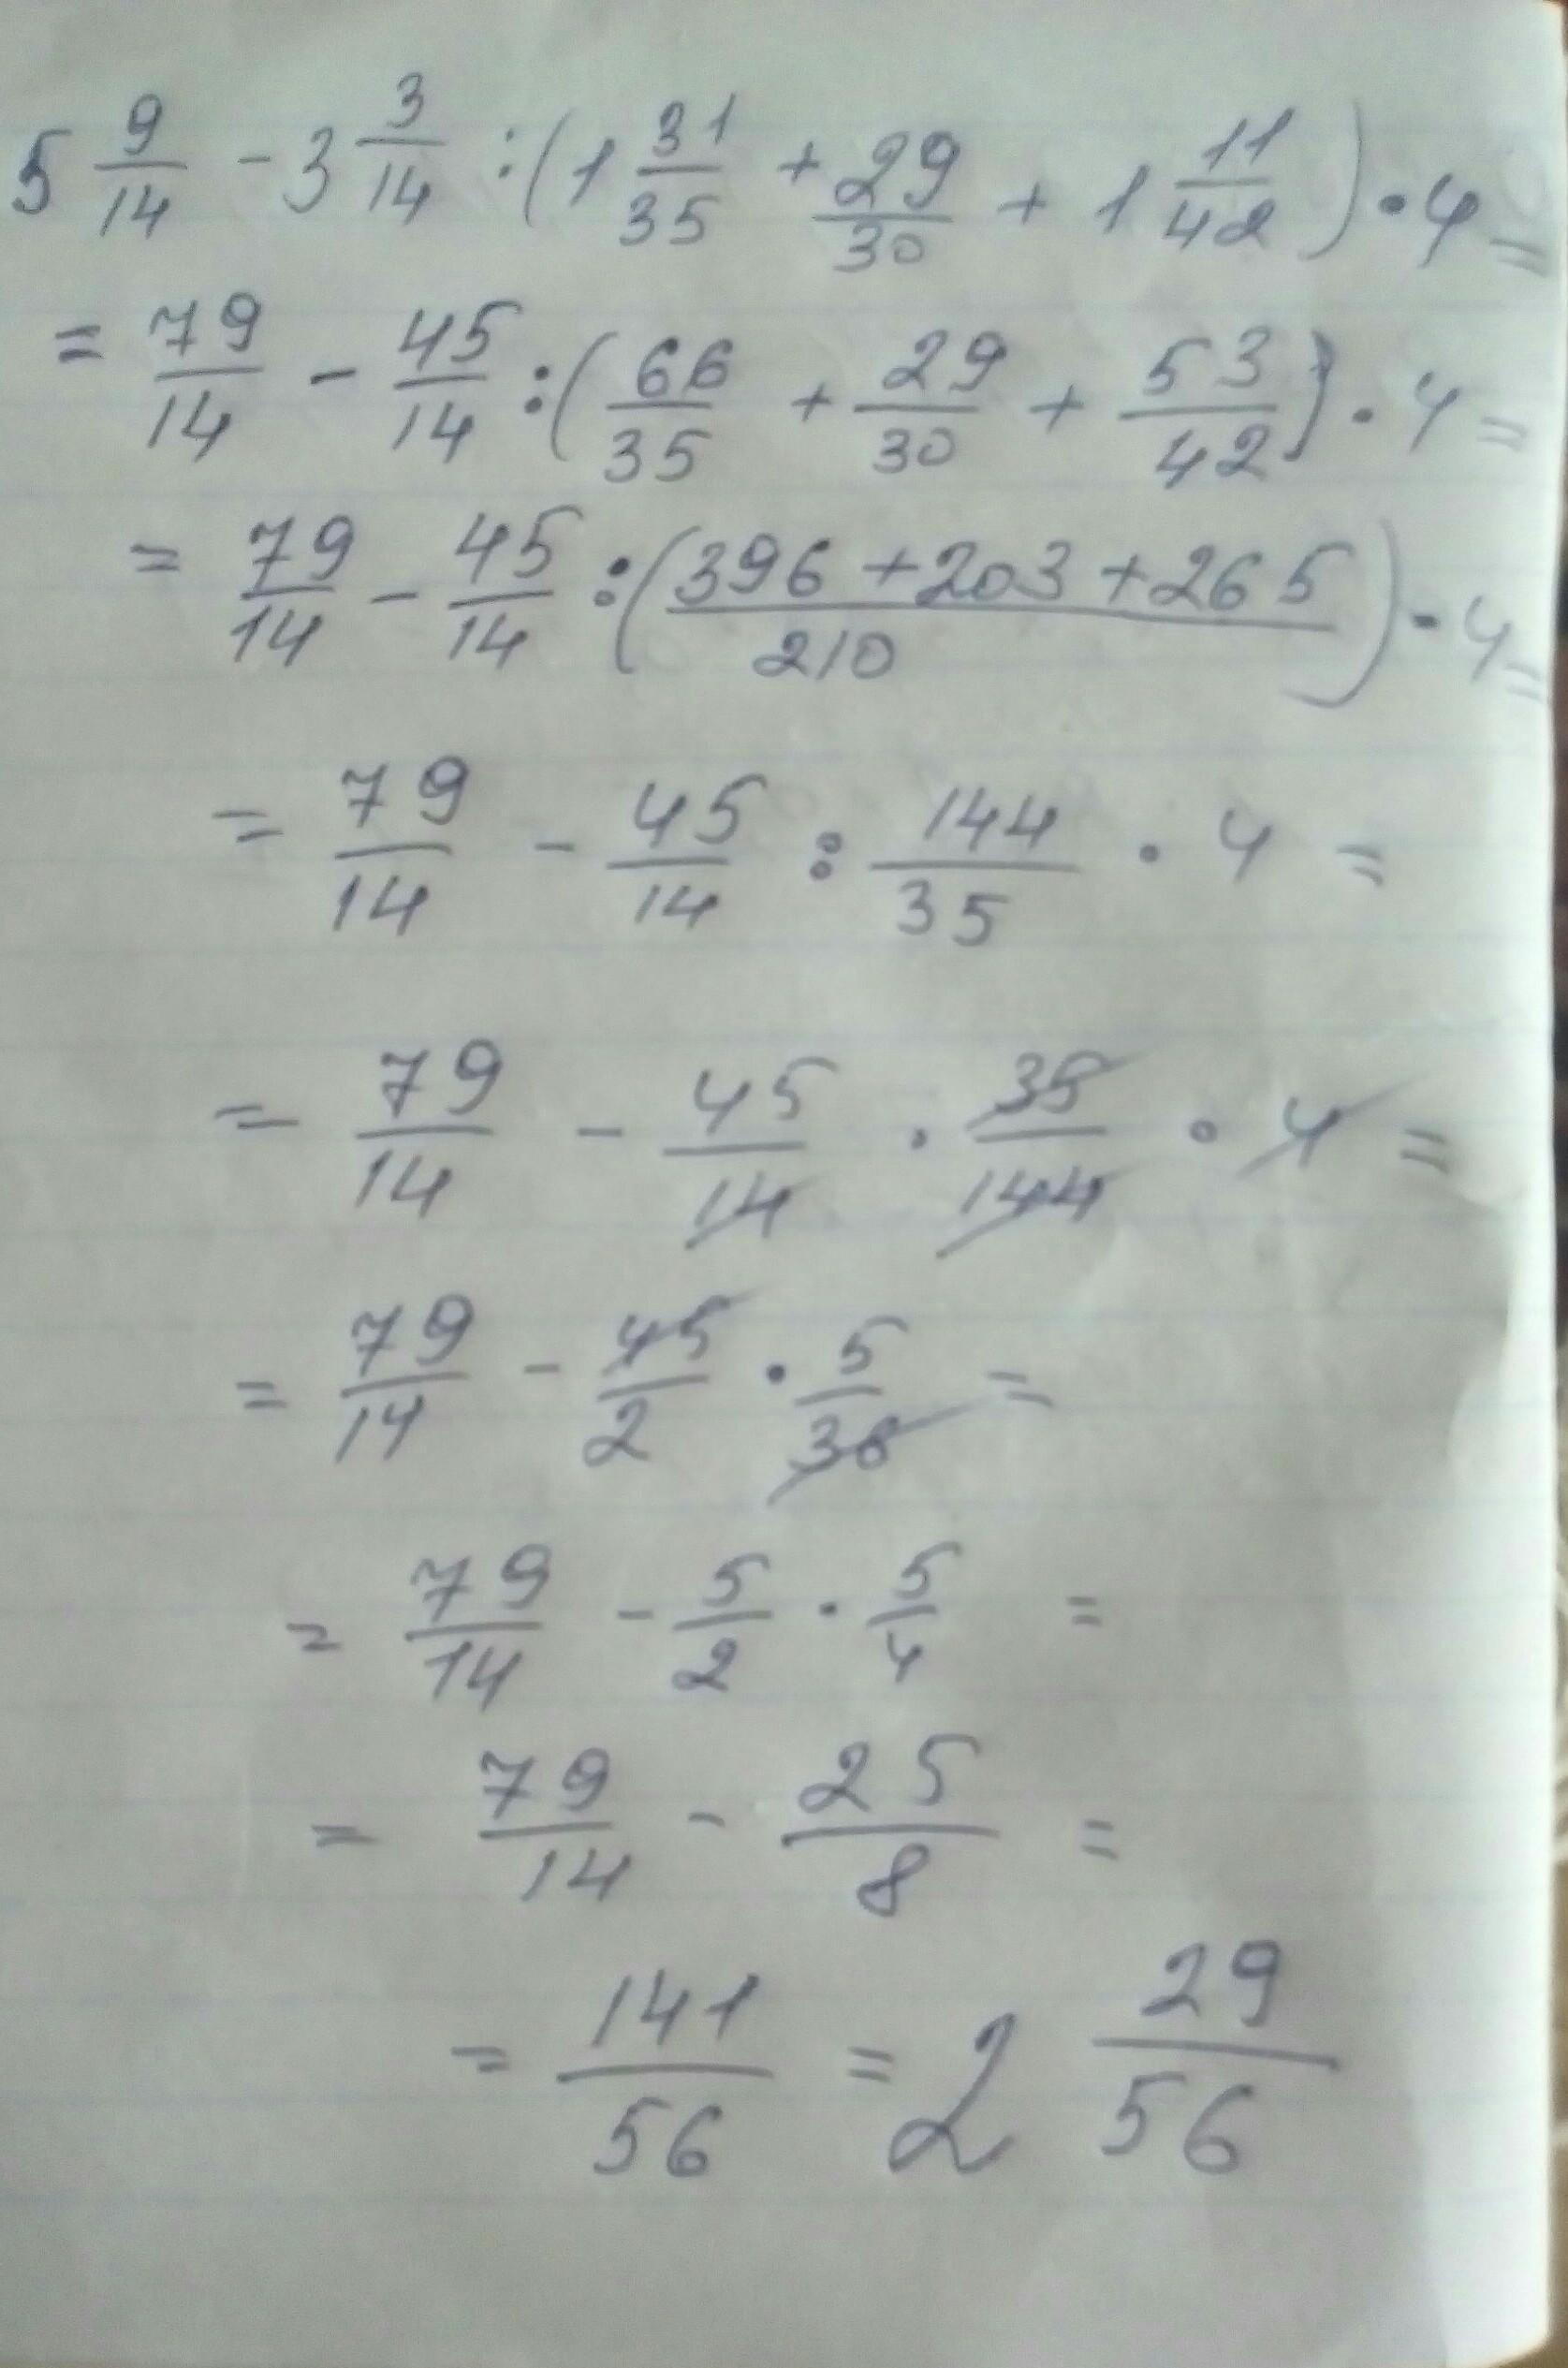 5 9/14 - 3 3/14 : (1 31/35 + 29/30 + 1 11/42) · 4 =
= 79/14 - 45/14 : (66/35 + 29/30 + 53/42) · 4 =
= 79/14 - 45/14 : (396 + 203 + 265/210) · 4 =
= 79/14 - 45/14 : 144/35 · 4 =
= 79/14 - 45/14 · 35/144 · 4 =
= 79/14 - 45/2 · 5/36 =
= 79/14 - 5/2 · 5/4 =
= 79/14 - 25/8 =
= 141/56 = 2 29/56